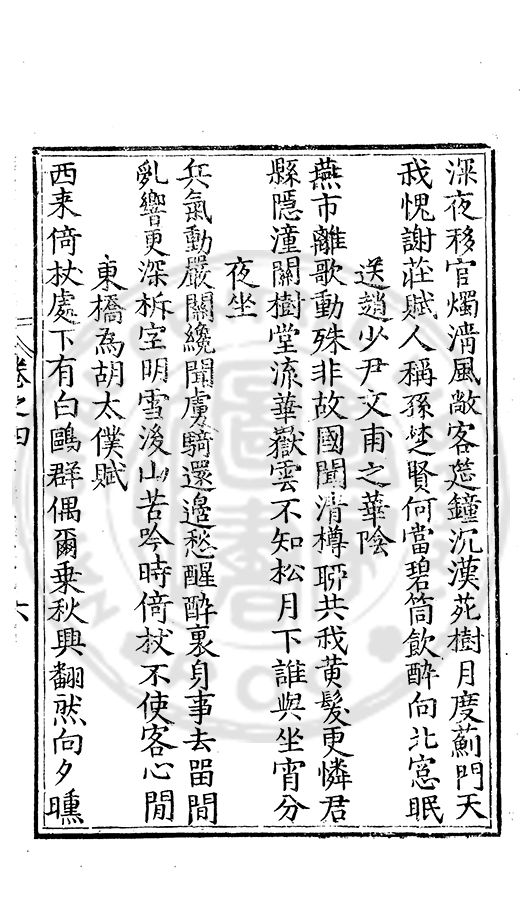 深夜移官燭清風敞客筵鐘沉漢苑樹月度薊門天
我愧謝莊賦人稱孫楚賢何當碧筒飲醉向北窓眠
送趙少尹文甫之華陰
燕市離歌動殊非故國聞清樽聊共我黄髮更憐君
縣隱潼關樹堂流華嶽雲不知松月下誰與坐宵分
夜坐
兵氣動嚴關纔聞虜騎還邉愁醒醉裏身事去留間
亂響更深柝空明雪後山苦吟時倚杖不使客心閒
東橋為胡太僕賦
西来倚杖處下有白鷗群偶爾乗秋興翻然向夕曛
卷之四
六